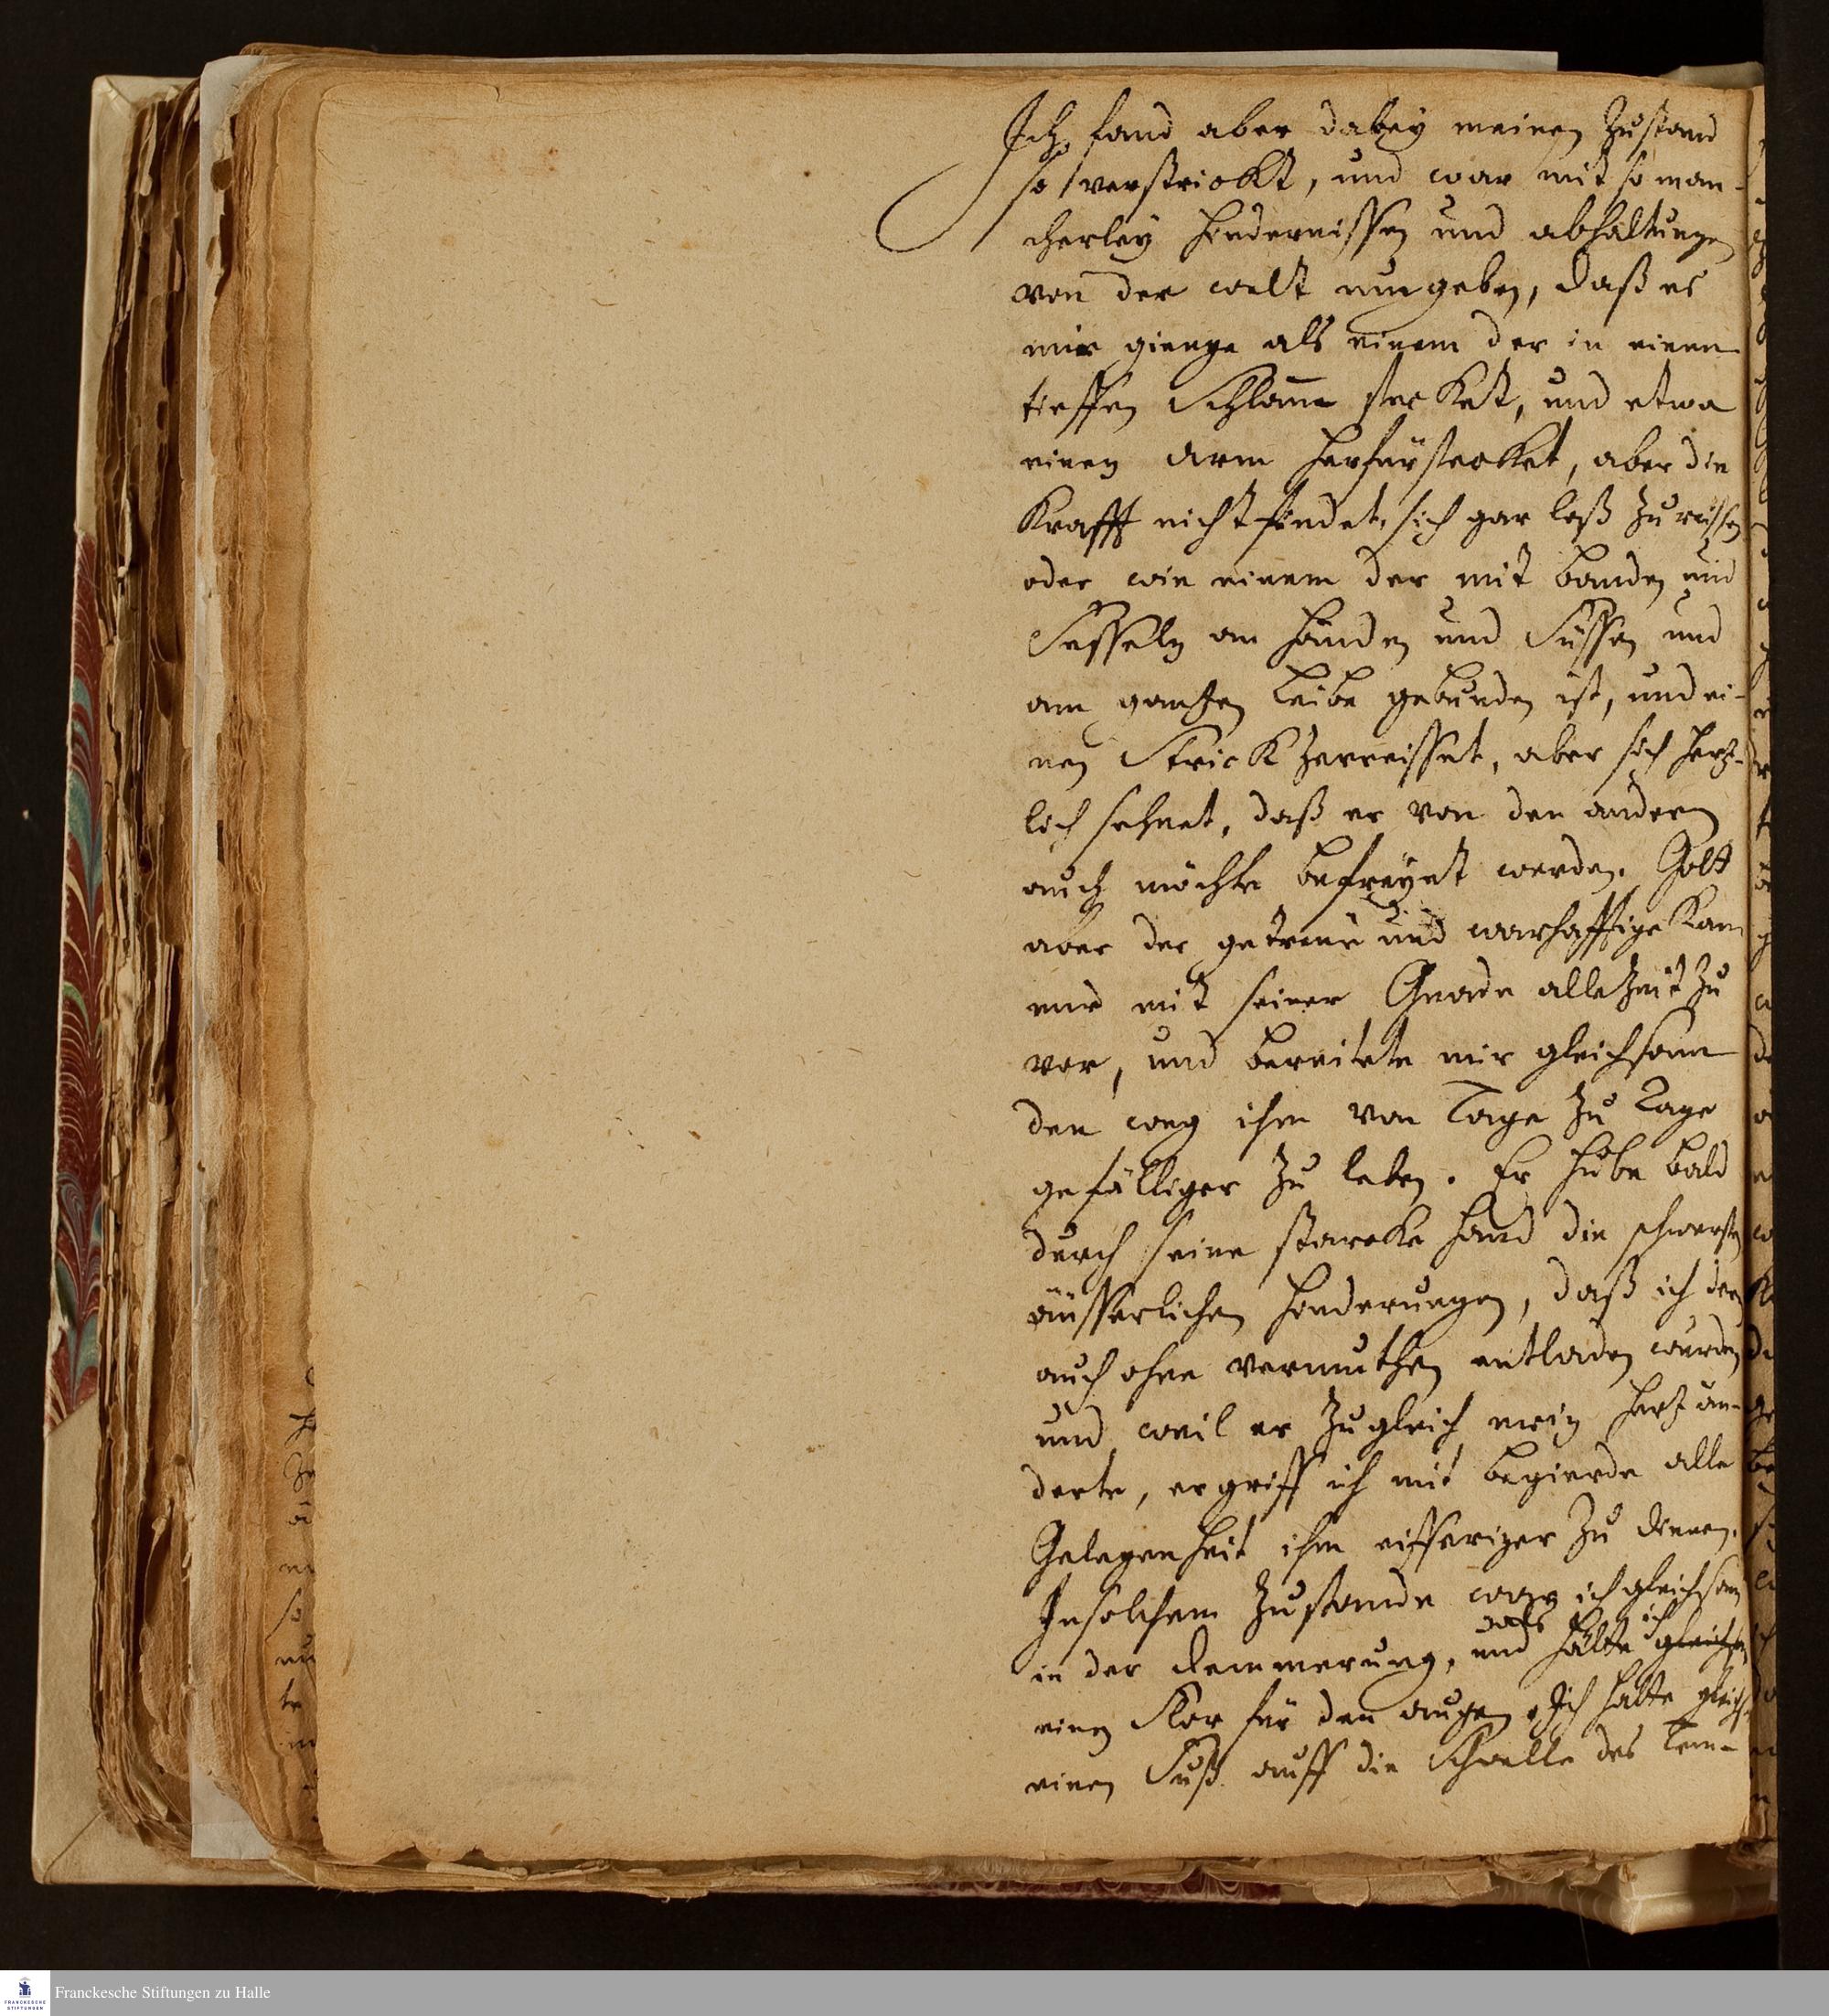 Ich fand aber dabey meinen Zustand
so verstrickt, und war mit so man-
cherley hindernissen und abhaltungen
von der welt umgeben, daß es
mir gienge als einem der in einen
tieffen Schlam̅ stecket, und etwa
einen arm herfürstecket, aber die
Krafft nicht findet, sich gar loß zu reissen
oder wie einem der mit banden und
Fesseln an händen und Füssen und
am gantzen leibe gebunden ist, und ei-
nen Strick zerreisset, aber sich hertz-
lich sehnet, daß er von den andern
auch möchte befreyet werden. Gott
aber der getreue und warhafftige kam
mir mit seiner Gnade allezeit zu
vor, und bereitete mir gleichsam
den weg ihm von Tage zu Tage
gefälliger zu leben. Er hube bald
durch seine starcke hand die schwersten
äusserlichen hinderungen, daß ich deren
auch ohne vermuthen entladen wurde,
und weil er zugleich mein hertz än-
derte, ergriff ich mit begierde alle
Gelegenheit ihm eifferiger zu dienen.
In solchem Zustande war ich gleichsam
in der demmerung, und als hätte ich gleichsam
einen Flor für den augen. Ich hatte gleichs.
einen Fuß auff die Schwelle des Tem-